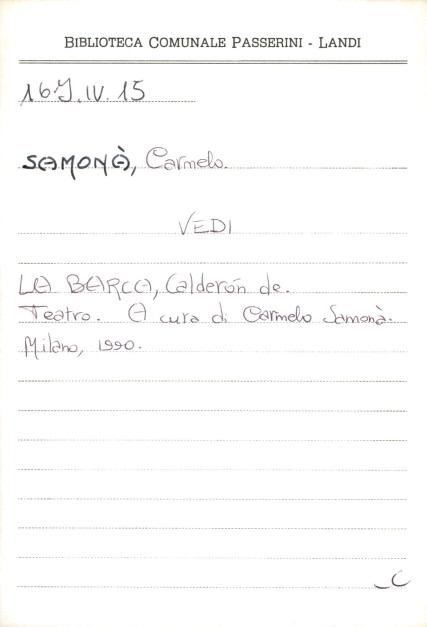 BIBLIOTECA COMUNALE PASSERINI - LANDI
16 J. IV. 15
SAMONÀ, Carmelo.
VEDI
LA BARCA, Calderón de.
Teatro. A cura di Carmelo Samonà.
Milano, 1990.
_C